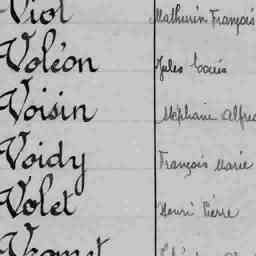 Viol Mathurin François
Voléon Jules Louis
Voisin Stéphane Alfred
Voidy François Marie
Volet Henri Pierre